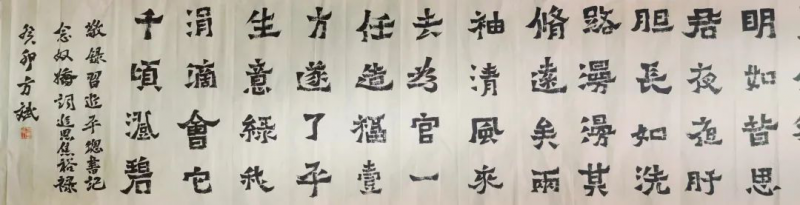 明如昔思
君夜夜肝
胆長如洗
路漫漫其
脩遠矣兩
袖清風來
去为官一
任造福壹
方遂了平
生意綠我
涓滴會它
千頃澄碧
敬録習近平總書記
念奴嬌詞追思焦裕禄
癸卯方斌